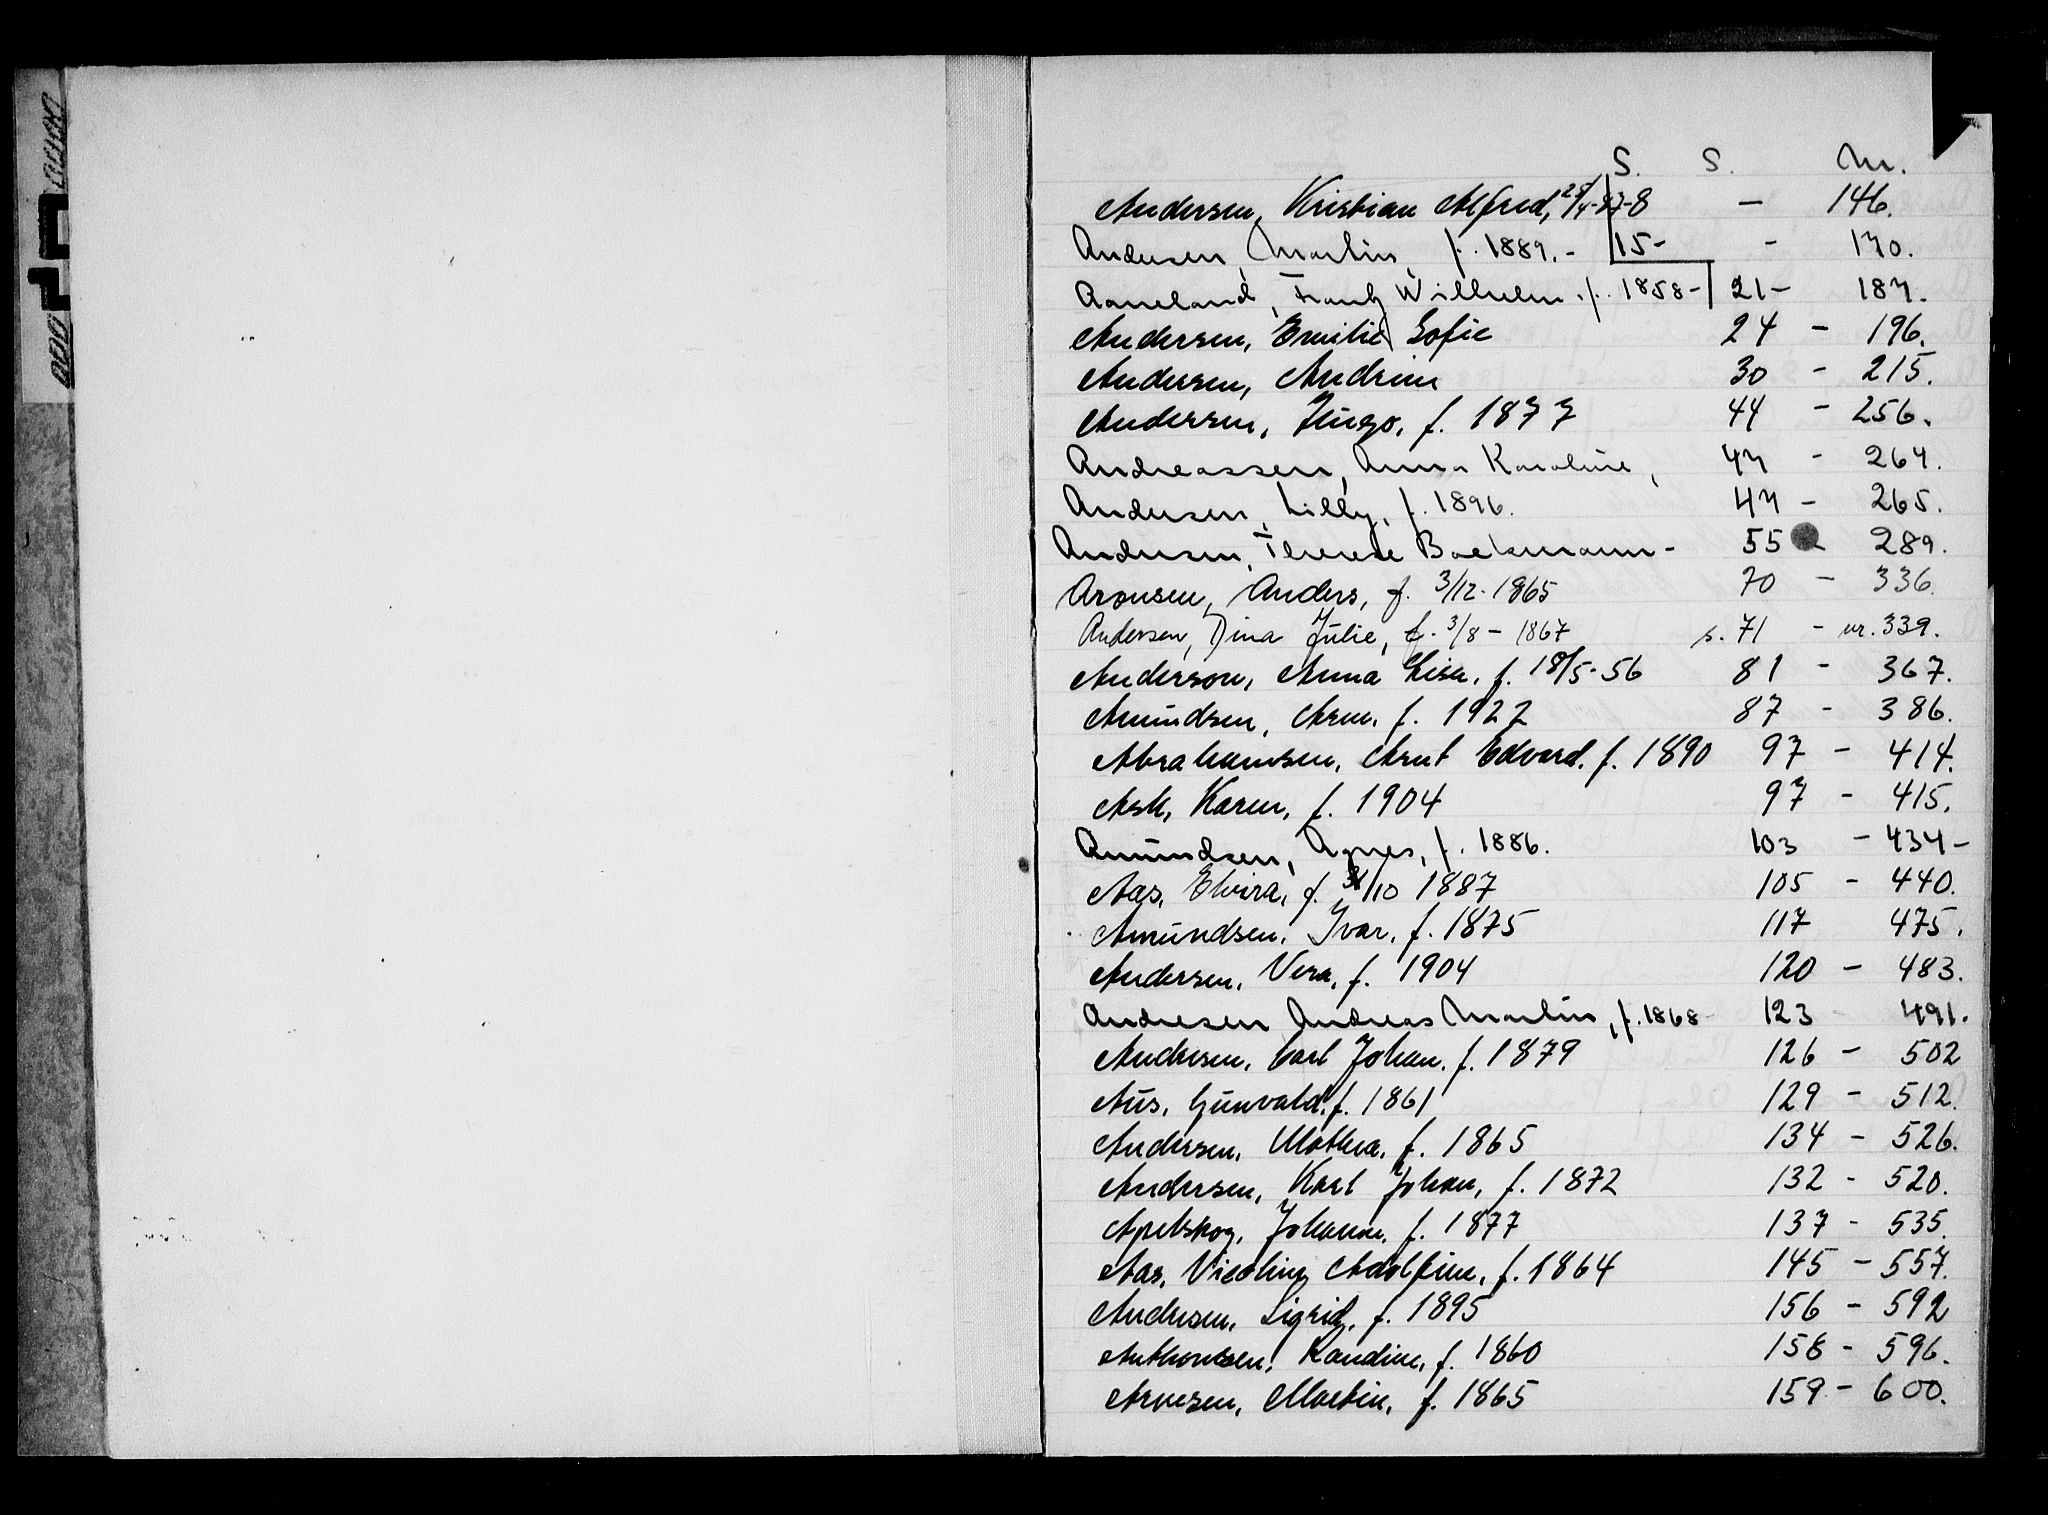 S. S. Nr.
Andersen, Kristian Alfred, 25/4-87-8 - 146.
Andersen, Martin, f. 1889. - 15- - 170.
Aaneland, Frantz Wilhelm. f. 1858- 21- 187.
Andersen, Emilie Sofie 24 - 196.
Andersen, Andrine 30 - 215.
Andersen, Hugo, f. 1877 44 - 256.
Andreassen, Anna Karoline, 47 - 264.
Andersen, Lilly, f. 1896. 47 - 265.
Andersen, Therese Backmann- 55 - 289.
Aronsen, Anders, f. 3/12-1865 70 - 336.
Andersen, Dina Julie, f. 3/8 - 1867 s. 71 - nr. 339.
Anderson, Anna Lisa, f. 18/5-56 81 - 367.
Amundsen, Arne, f. 1922 87 - 386.
Abrahamsen, Arnt Edvard. f. 1890 97 - 414.
Ask, Karen, f. 1904 97 - 415.
Amundsen, Agnes, f. 1886. 103 - 434-
Aas, Elvira, f. /10 1887 105 - 440.
Amundsen, Ivar, f. 1875 117 475.
Andersen, Vera, f. 1904 120 - 483.
Andresen Andreas Martin, f. 1868- 123 - 491.
Andersen, Carl Johan. f. 1879 126 - 502
Aus, Gunvald. f. 1861 129 - 512.
Andersen, Mathea, f. 1865 134 - 526.
Andersen, Karl Johan, f. 1872 132 - 520.
Apelskog, Johanne, f. 1877 137 - 535.
Aas, Adolfine, f. 1864 145 - 557.
Andresen, Sigrid, f. 1895 156 - 592
Anthonsen, Randine, f. 1860 158 - 596.
Arnesen, Martin, f. 1865 159 - 600.